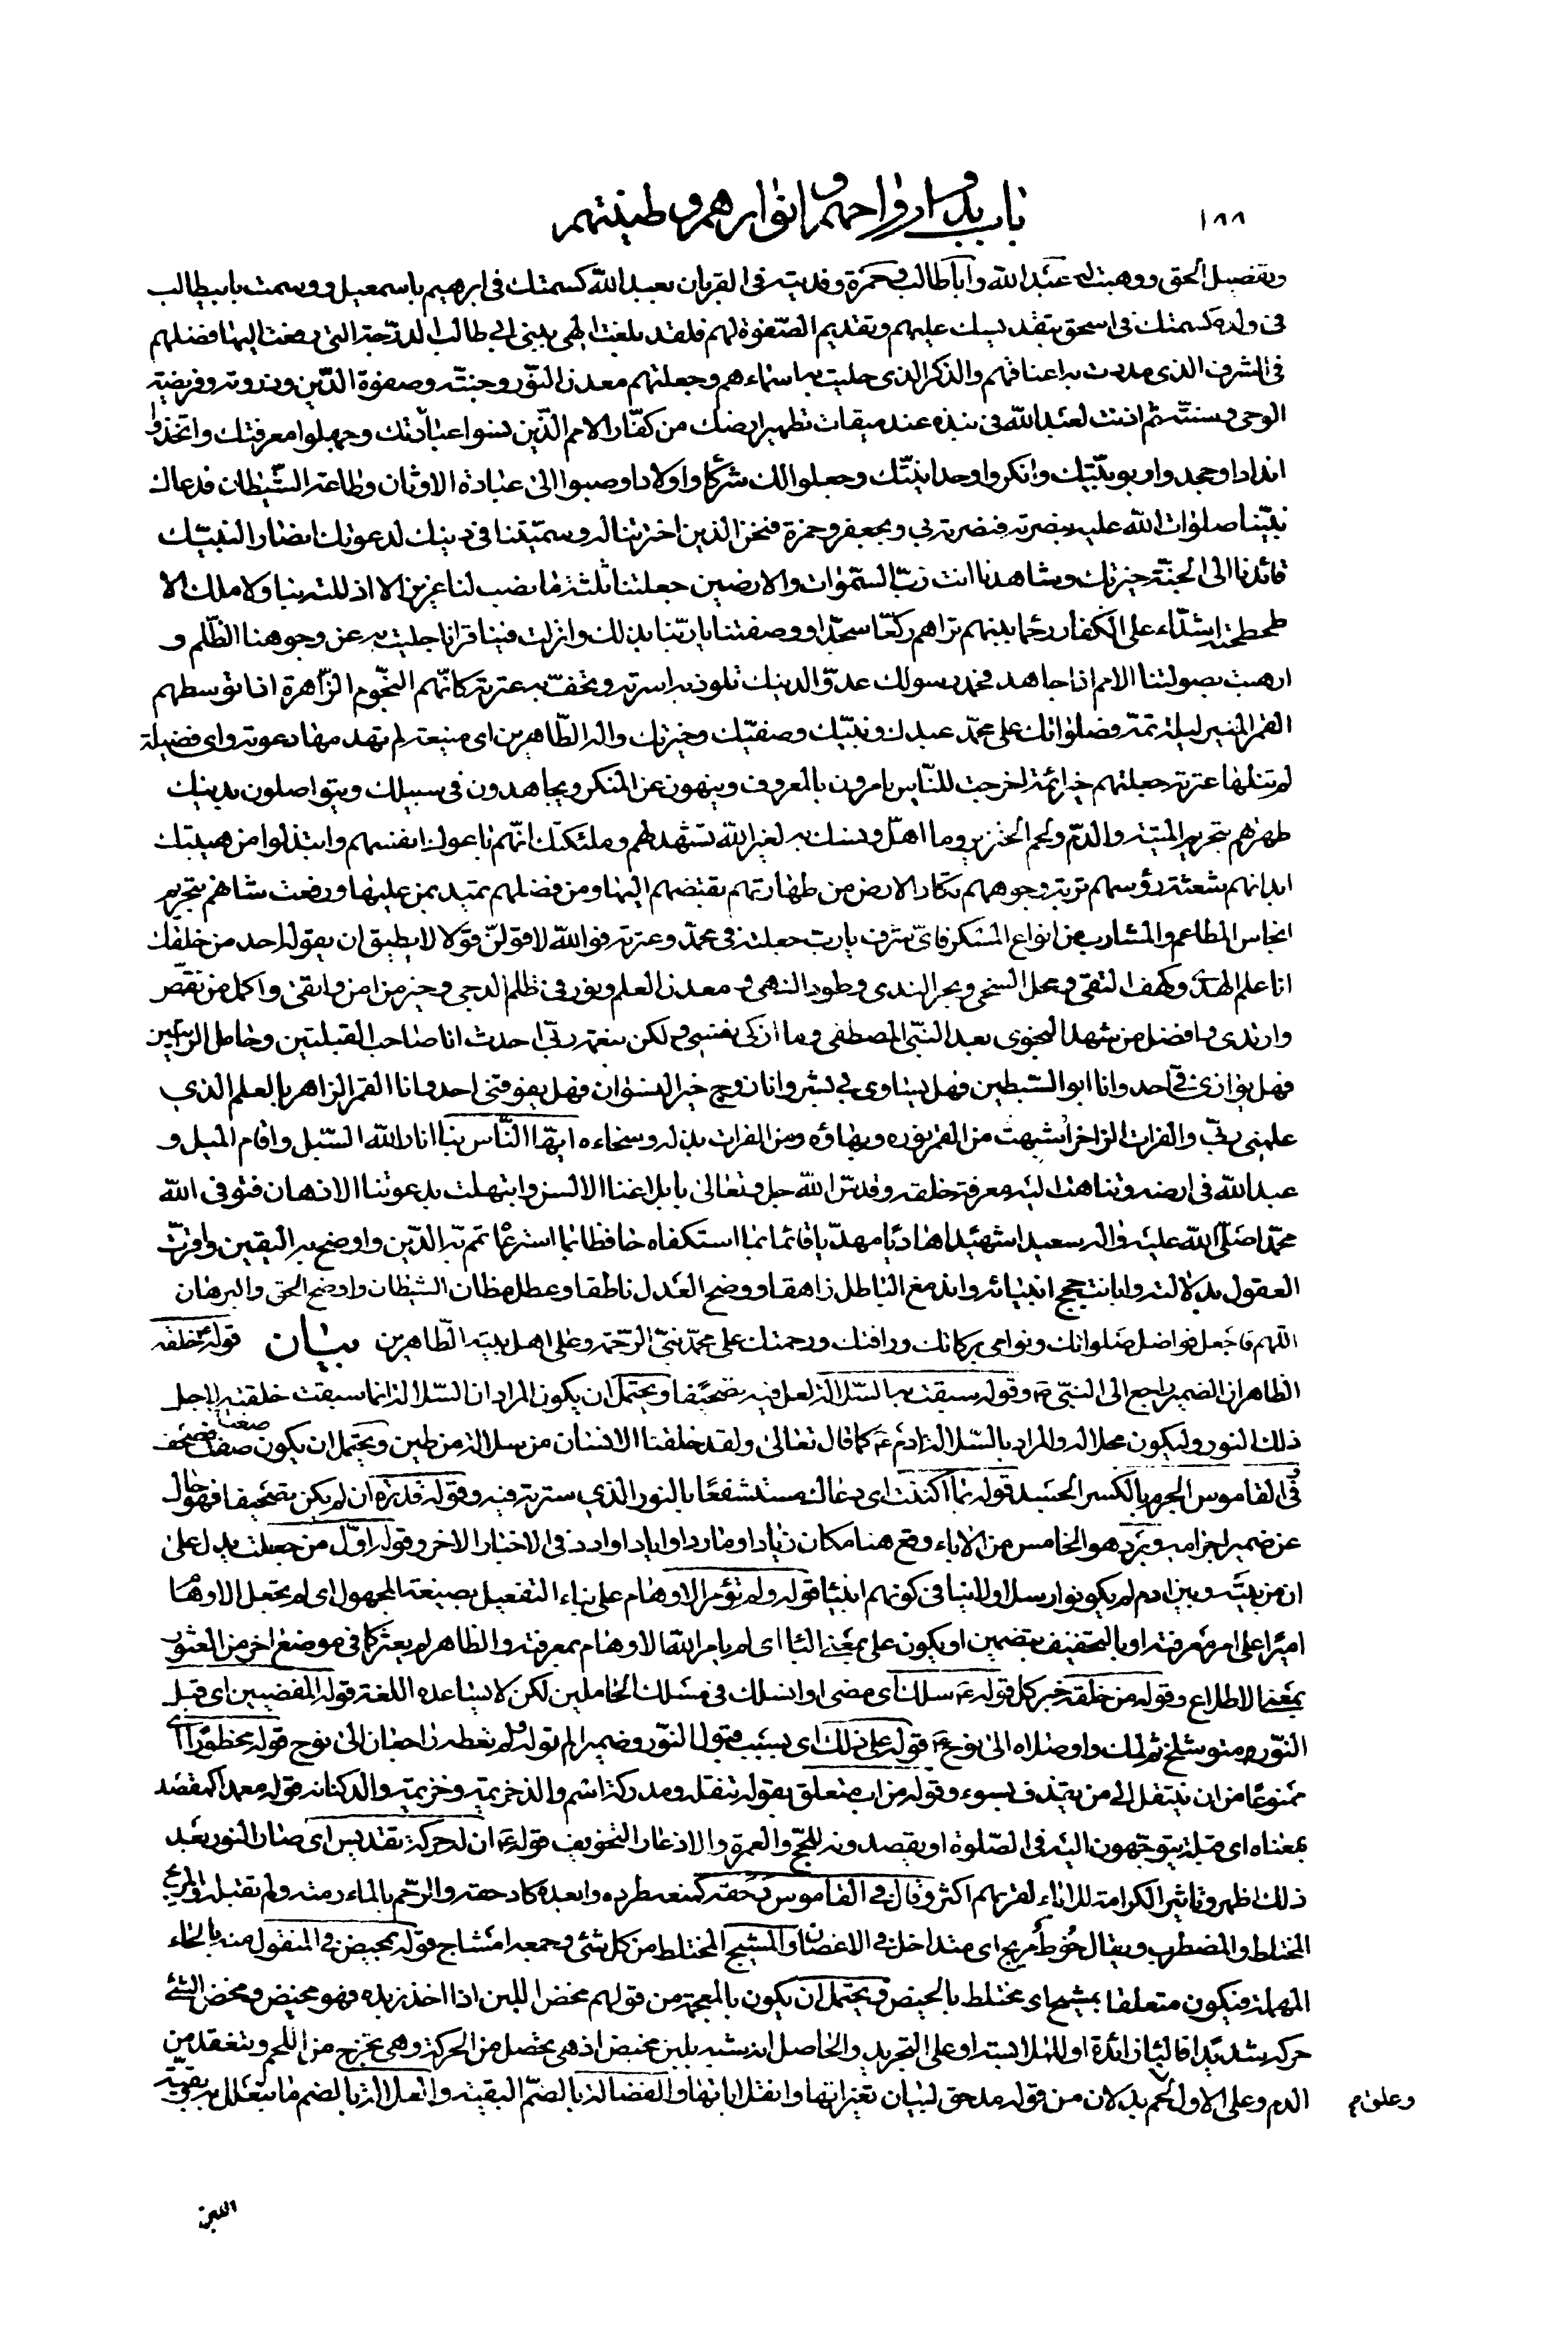 ١٨٨
باب بدو ارواحهم و انوارهم و طينتهم
وبفضيل الحق ووهبت له عبد الله وأبا طالب وحمزة وفديته في القربان بعبد الله كسمتك في ابرهيم باسمعيل ووسمت بابيطالب
في ولده كسمتك في اسحق بتقديسك عليهم وتقديم الصفوة لهم فلقد بلغت الهي ببني ابي طالب الدرجة التي رفعت اليها فضلهم
في الشرف الذي مددت به اعناقهم والذكر الذي حليت به اسماءهم وجعلتهم معدن النور وجنته وصفوة الدين وذروته وفريضة
الوحي وسنته ثم اذنت لعبد الله في نبذه عند ميقات تطهير ارضك من كفار الامم الذين نسوا عبادتك وجهلوا معرفتك واتخذوا
اندادا وجحدوا ربوبيتك وانكروا وحدانيتك وجعلوا لك شركا واولادا وصبوا الى عبادة الاوثان وطاعة الشيطان فدعاك
نبينا صلوات الله عليه بنصرته فنصرته بي وبجعفر وحمزة فنحن الذين اخترتنا له وسميتنا في دينك لدعوتك انصارا لنبيك
قائدنا الى الجنة خيرتك وشاهدنا انت رب السموات والارضين جعلتنا ثلثة ما نصب لنا عزيز الا اذللته بنا ولا ملك الا
طحطحته اشداء على الكفار رحماء بينهم تراهم ركعا سجدا ووصفتنا يا ربنا بذلك وانزلت فينا قرانا جليت به عن وجوهنا الظلم و
ارهبت بصولتنا الامم اذا جاهد محمد رسولك عدوا لدينك تلوذ به اسرته وتحف به عترته كانهم النجوم الزاهرة اذا توسطهم
القمر المنير ليلة تمه فصلواتك على محمد عبدك ونبيك وصفيك وخيرتك واله الطاهرين اي منيعة لم تهدمها دعوته واي فضيلة
لم تنلها عترته جعلتهم خير ائمة اخرجت للناس يامرون بالمعروف وينهون عن المنكر ويجاهدون في سبيلك ويتواصلون بدينك
طهرتهم بتحريم الميتة والدم ولحم الخنزير وما اهل ونسك به لغير الله تشهد لهم وملئكتك انهم باعوك انفسهم وابتذلوا من هيبتك
ابدانهم شعثة رؤسهم تربة وجوههم تكاد الارض من طهارتهم يقبضهم اليها ومن فضلهم تميد بمن عليها رفعت شانهم بتحريم
انجاس المطاعم والمشارب من انواع المسكر فاي شرف يا رب جعلته في محمد وعترته فوالله لاقولن قولا لا يطيق ان يقوله احد من خلقك
انا علم الهدى وكهف التقى ومحل السخي وبحر الندى وطود النهى ومعدن العلم ونور في ظلم الدجى وخير من امن واتقى واكمل من تقمص
وارتدى وافضل من شهد النجوى بعد النبي المصطفى وما ازكي نفسي ولكن بنعمة ربي احدث انا صاحب القبلتين وحامل الرايتين
فهل يوازى في احد وانا ابو السبطين فهل يساوى بي بشر وانا زوج خير النسوان فهل يفوقني احد وانا القمر الزاهر بالعلم الذي
علمني ربي والفرات الزاخر اشبهت من القمر نوره وبهاؤه ومن الفرات بذله وسخاءه ايها الناس بنا انار الله السبل واقام الميل و
عبد الله في ارضه وتناهت اليه معرفة خلقه وقدس الله جل وتعالى بابلاغنا الالسن وابتهلت بدعوتنا الاذهان فتوفى الله
محمدا صلى الله عليه واله سعيدا شهيدا هاديا مهديا قائما بما استكفاه حافظا لما استرعاه تمم به الدين واوضح به اليقين واقرت
العقول بدلالته وابانت حجج انبيائه واندمغ الباطل زاهقا ووضح العدل ناطقا وعطل مظان الشيطان واوضح الحق والبرهان
اللهم فاجعل فواضل صلواتك ونوامي بركاتك ورافتك ورحمتك على محمد نبي الرحمة وعلى اهل بيته الطاهرين بيان قوله خلقه
الظاهر ان الضمير راجع الى النبي ص وقوله سبقت به السلالة لعل فيه تصحيفا ويحتمل ان يكون المراد ان السلالة انما سبقت خلقته لاجل
ذلك النور وليكون محلا له والمراد بالسلالة ادم ع كما قال تعالى ولقد خلقنا الانسان من سلالة من طين ويحتمل ان يكون
في القاموس الجرم بالكسر الجسد قوله بما اكننت اي دعاك مستشفعا بالنور الذي سترته فيه وقوله قدره ان لم يكن تصحيفا فهو حال
عن ضمير اجرامه ويرد هو الخامس من الاباء وقع هنا مكان يارد او مارد او اياد او ادد في الاخبار الاخر وقوله اول من جعلت يدل على
ان من بينه وبين ادم لم يكونوا رسلا ولا ينافي كونهم انبياء قوله ولم تؤمر الاوهام على بناء التفعيل بصيغة المجهول اي لم يجعل الاوها
اميرا على امر معرفته او بالتخفيف بتضمين او يكون على بمعنى الباء اي لم يامر الله الاوهام بمعرفته والظاهر لم يعثر كما في موضع اخر من العثور
بمعنى الاطلاع وقوله من خلقه خبر كل قوله ع سلك اي مضى او انسلك في مسلك الحاملين لكن لا يساعده اللغة قوله المفضيين اي قبل
النور متوشلخ ثم لمك واوصلاه الى نوح ع قوله على ذلك اي بسبب قبول النور وضمير الم توله ولم تعطه راجعان الى نوح قوله محظورا اي
ممنوعا من ان ينتقل الى من يقذف بسوء وقوله من اب متعلق بقوله تنقله ومدركة اسم والد خزيمة وخزيمة والد كنانة قوله معدا كمقصد
بمعناه اي قبلة يتوجهون اليه في الصلوة او يقصدونه للحج والعمرة والاذعار التخويف قوله ع ان لحركة تقديس اي صار النور بعد
ذلك اظهر وتاثير الكرامة للاباء لقربهم اكثر وقال في القاموس دحقه كمنعه طرده وابعده كادحقه والرحم بالماء رمته ولم تقبله والمريج
المختلط والمضطرب ويقال خوط مريج اي متداخل في الاغصان والمشيج المختلط من كل شئ وجمعه امشاج قوله بمحيض في المنقول منه بالحاء
المهملة فيكون متعلقا بمشيج اي مختلط بالحيض ويحتمل ان يكون بالمعجمة من قولهم مخض اللبن اذا اخذ زبده فهو مخيض ومخض الشئ
حركه شديدا فالباء زائدة او للملابسة او على التجريد والحاصل انه شبه بلبن مخيض اذ هي تحصل من الحركة وهي تخرج من اللحم وتنعقد من
الدم وعلى الاول لحم بدلان من قوله مدحق لبيان تغيراتها وانقلاباتها والفضالة بالضم البقية والعلالة بالضم ما يتعلل به وبقية
وعلق م
اللبن